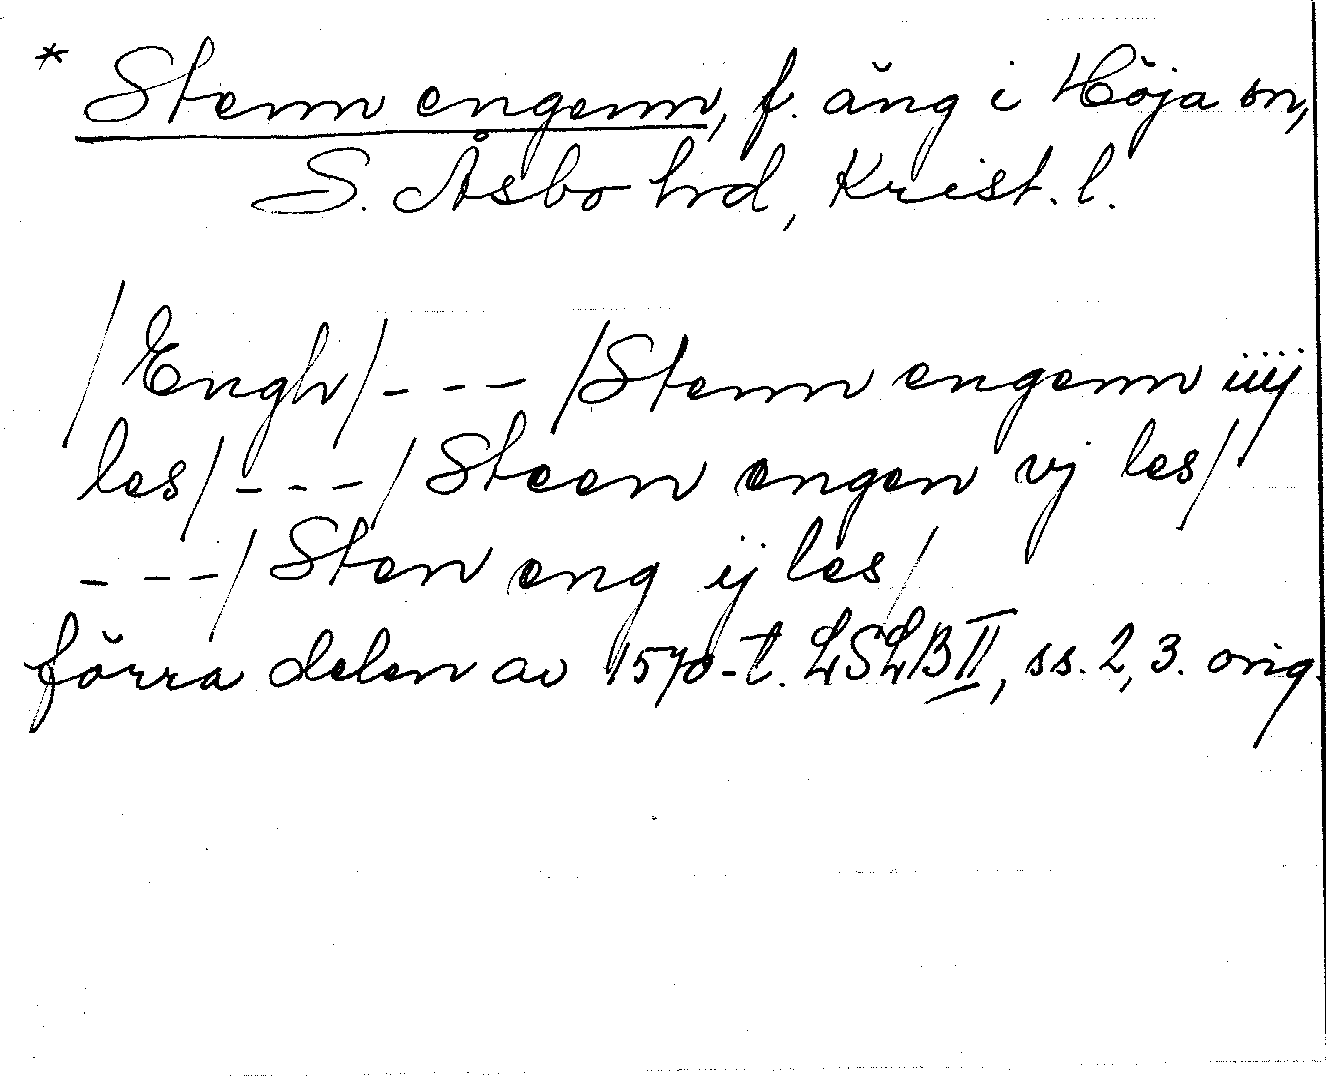 * Stenn engenn, f. äng i Höja sn,
S. Åsbo hrd, Krist. l.
/Engh/--- /Stenn engenn iiij
les/---/ Steen engen vj les/
---/ Sten eng ij les/
förra delen av 1570-t. LSLB II, ss. 2, 3. orig.